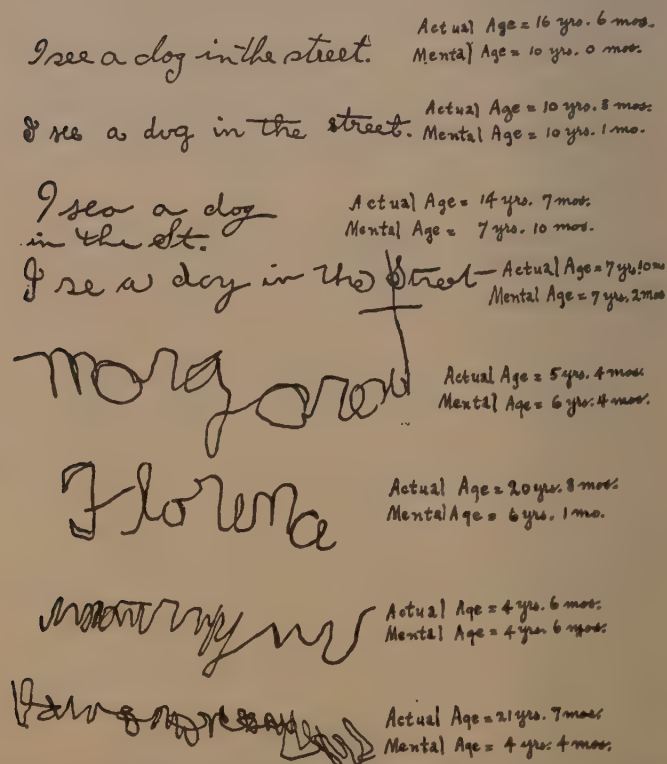 I see a dog in the street.
Actual Age = 16 yrs. 6 mos.
Mental Age = 10 yrs. 0 mos.
I see a dog in the street.
Actual Age = 10 yrs. 8 mos.
Mental Age = 10 yrs. 1 mo.
I sea a dog
in the St.
Actual Age = 14 yrs. 7 mos.
Mental Age = 7 yrs. 10 mos.
I se a doy in the Street
Actual Age = 7 yrs. 0 mo
Mental Age = 7 yrs. 2 mos
Margaret
Actual Age = 5 yrs. 4 mos.
Mental Age = 6 yrs. 4 mos.
Florena
Actual Age = 20 yrs. 8 mos.
Mental Age = 6 yrs. 1 mo.
Actual Age = 4 yrs. 6 mos.
Mental Age = 4 yrs. 6 mos.
Actual Age = 21 yrs. 7 mos.
Mental Age = 4 yrs. 4 mos.